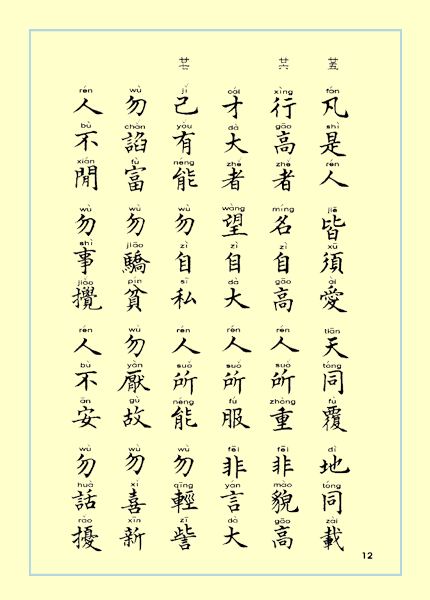 廿五
fán shì rén jiē xū ài tiān tóng fù dì tóng zài
凡是人 皆須愛 天同覆 地同載
廿六
xìng gāo zhě míng zì gāo rén suǒ zhòng fēi mào gāo
行高者 名自高 人所重 非貌高
cái dà zhě wàng zì dà rén suǒ fú fēi yán dà
才大者 望自大 人所服 非言大
廿七
jǐ yǒu néng wù zì sī rén suǒ néng wù qīng zǐ
己有能 勿自私 人所能 勿輕訾
wù chǎn fù wù jiāo pín wù yàn gù wù xǐ xīn
勿諂富 勿驕貧 勿厭故 勿喜新
rén bù xián wù shì jiǎo rén bù ān wù huà rǎo
人不閒 勿事攪 人不安 勿話擾
12